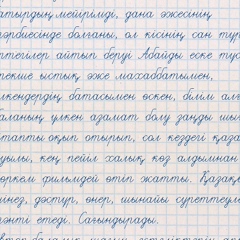 атырдың мейірімді, дана әжесінің
тәрбиесінде болғаны, ол кісінің сан түр
ертегілер айтып беруі Абайды еске түс
ерекше ыстық әже махаббатымен,
үлкендердің батасымен өскен, білім алғ
аланың үлкен азамат болу заңды шығ
тапты оқып отырып, сол кездегі қаза
ауылы, кең пейіл халық көз алдымнан
көркем фильмдей өтіп жатты. Қазақы
мінез, дәстүр, өнер, шынайы суреттелу
тәнті етеді. Сағындырады.